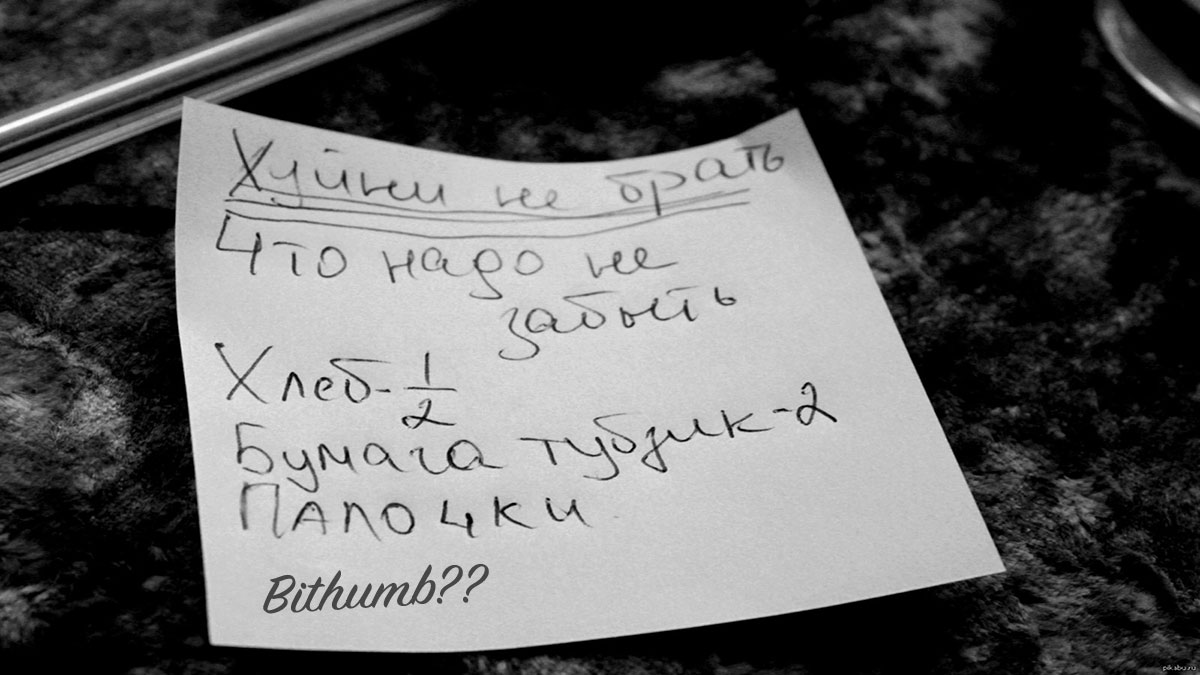 Хуйни не брать
Что надо не
забыть
Хлеб-1/2
Бумага тубзик-2
Палочки
Bithumb??
pikabu.ru